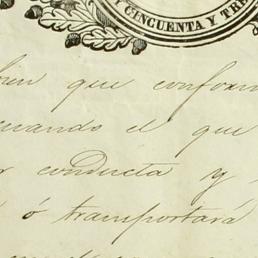 Y CINCUENTA Y TRE
bien que conform
cuando el que
conducta y
ó transportará